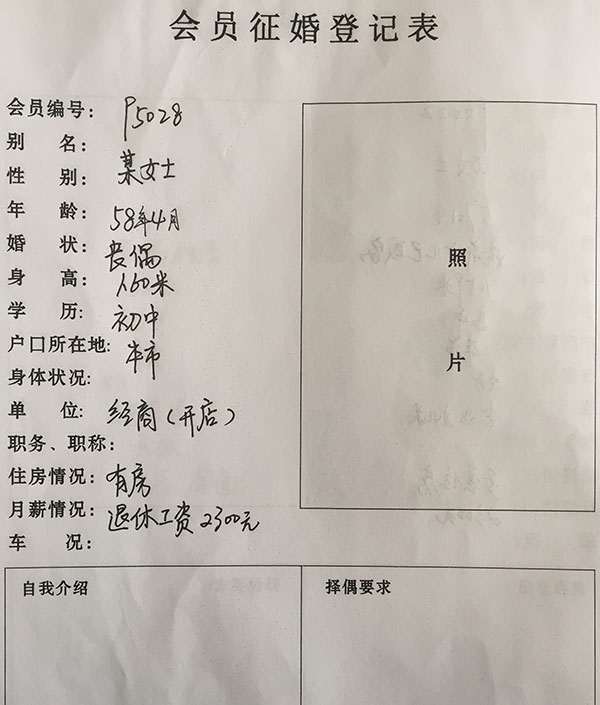 会员征婚登记表
会员编号： P5028
别 名：
性 别： 某女士
年 龄： 58年4月
婚 状： 丧偶
身 高： 1.60米
学 历： 初中
户口所在地： 本市
身体状况：
单 位： 经商（开店）
职务、职称：
住房情况： 有房
月薪情况： 退休工资2300元
车 况：
照
片
自我介绍
择偶要求